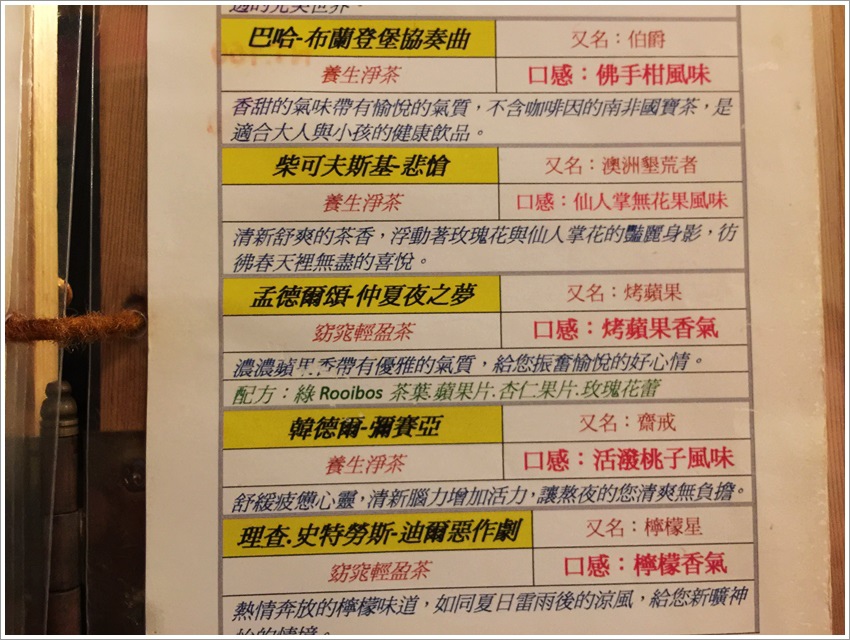 適的完美世界。
巴哈-布蘭登堡協奏曲 又名：伯爵
養生淨茶 口感：佛手柑風味
香甜的氣味帶有愉悅的氣質，不含咖啡因的南非國寶茶，是
適合大人與小孩的健康飲品。
柴可夫斯基-悲愴 又名：澳洲墾荒者
養生淨茶 口感：仙人掌無花果風味
清新舒爽的茶香，浮動著玫瑰花與仙人掌花的豔麗身影，彷
彿春天裡無盡的喜悅。
孟德爾頌-仲夏夜之夢 又名：烤蘋果
窈窕輕盈茶 口感：烤蘋果香氣
濃濃蘋果香帶有優雅的氣質，給您振奮愉悅的好心情。
配方：綠 Rooibos 茶葉.蘋果片.杏仁果片.玫瑰花蕾
韓德爾-彌賽亞 又名：齋戒
養生淨茶 口感：活潑桃子風味
舒緩疲憊心靈，清新腦力增加活力，讓熬夜的您清爽無負擔。
理查.史特勞斯-迪爾惡作劇 又名：檸檬星
窈窕輕盈茶 口感：檸檬香氣
熱情奔放的檸檬味道，如同夏日雷雨後的涼風，給您新曠神
怡的情境。